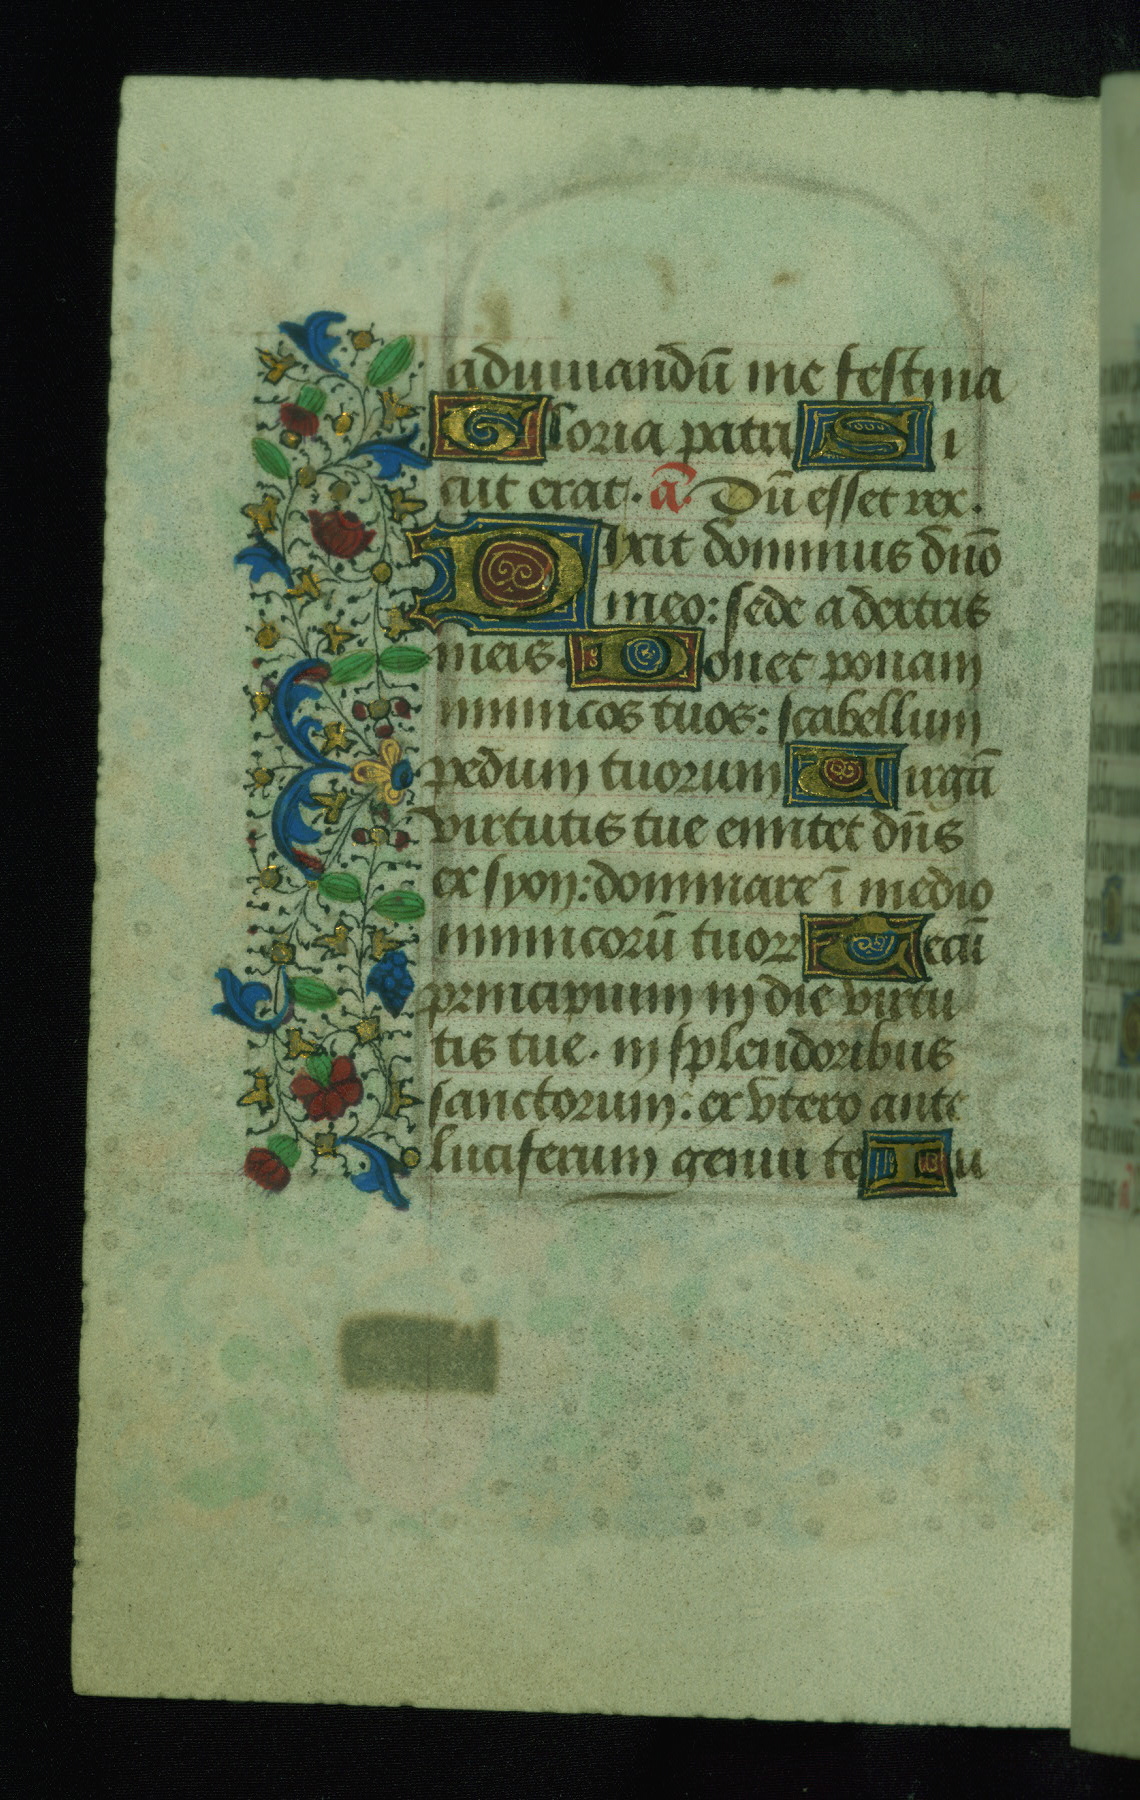 adiuuandū me festina
Gloria patri Si
cut erat. a. Dū esset rex.
Dixit dominus dño
meo: sede a dextris
meis. Donec ponam
inimicos tuos: scabellum
pedum tuorum Uirgā
virtutis tue emittet dñs
ex syon: dominare ī medio
inimicorū tuorr Tecū
principium in die virtu
tis tue. in splendoribus
sanctorum. ex vtero ante
luciferum genui te Iu